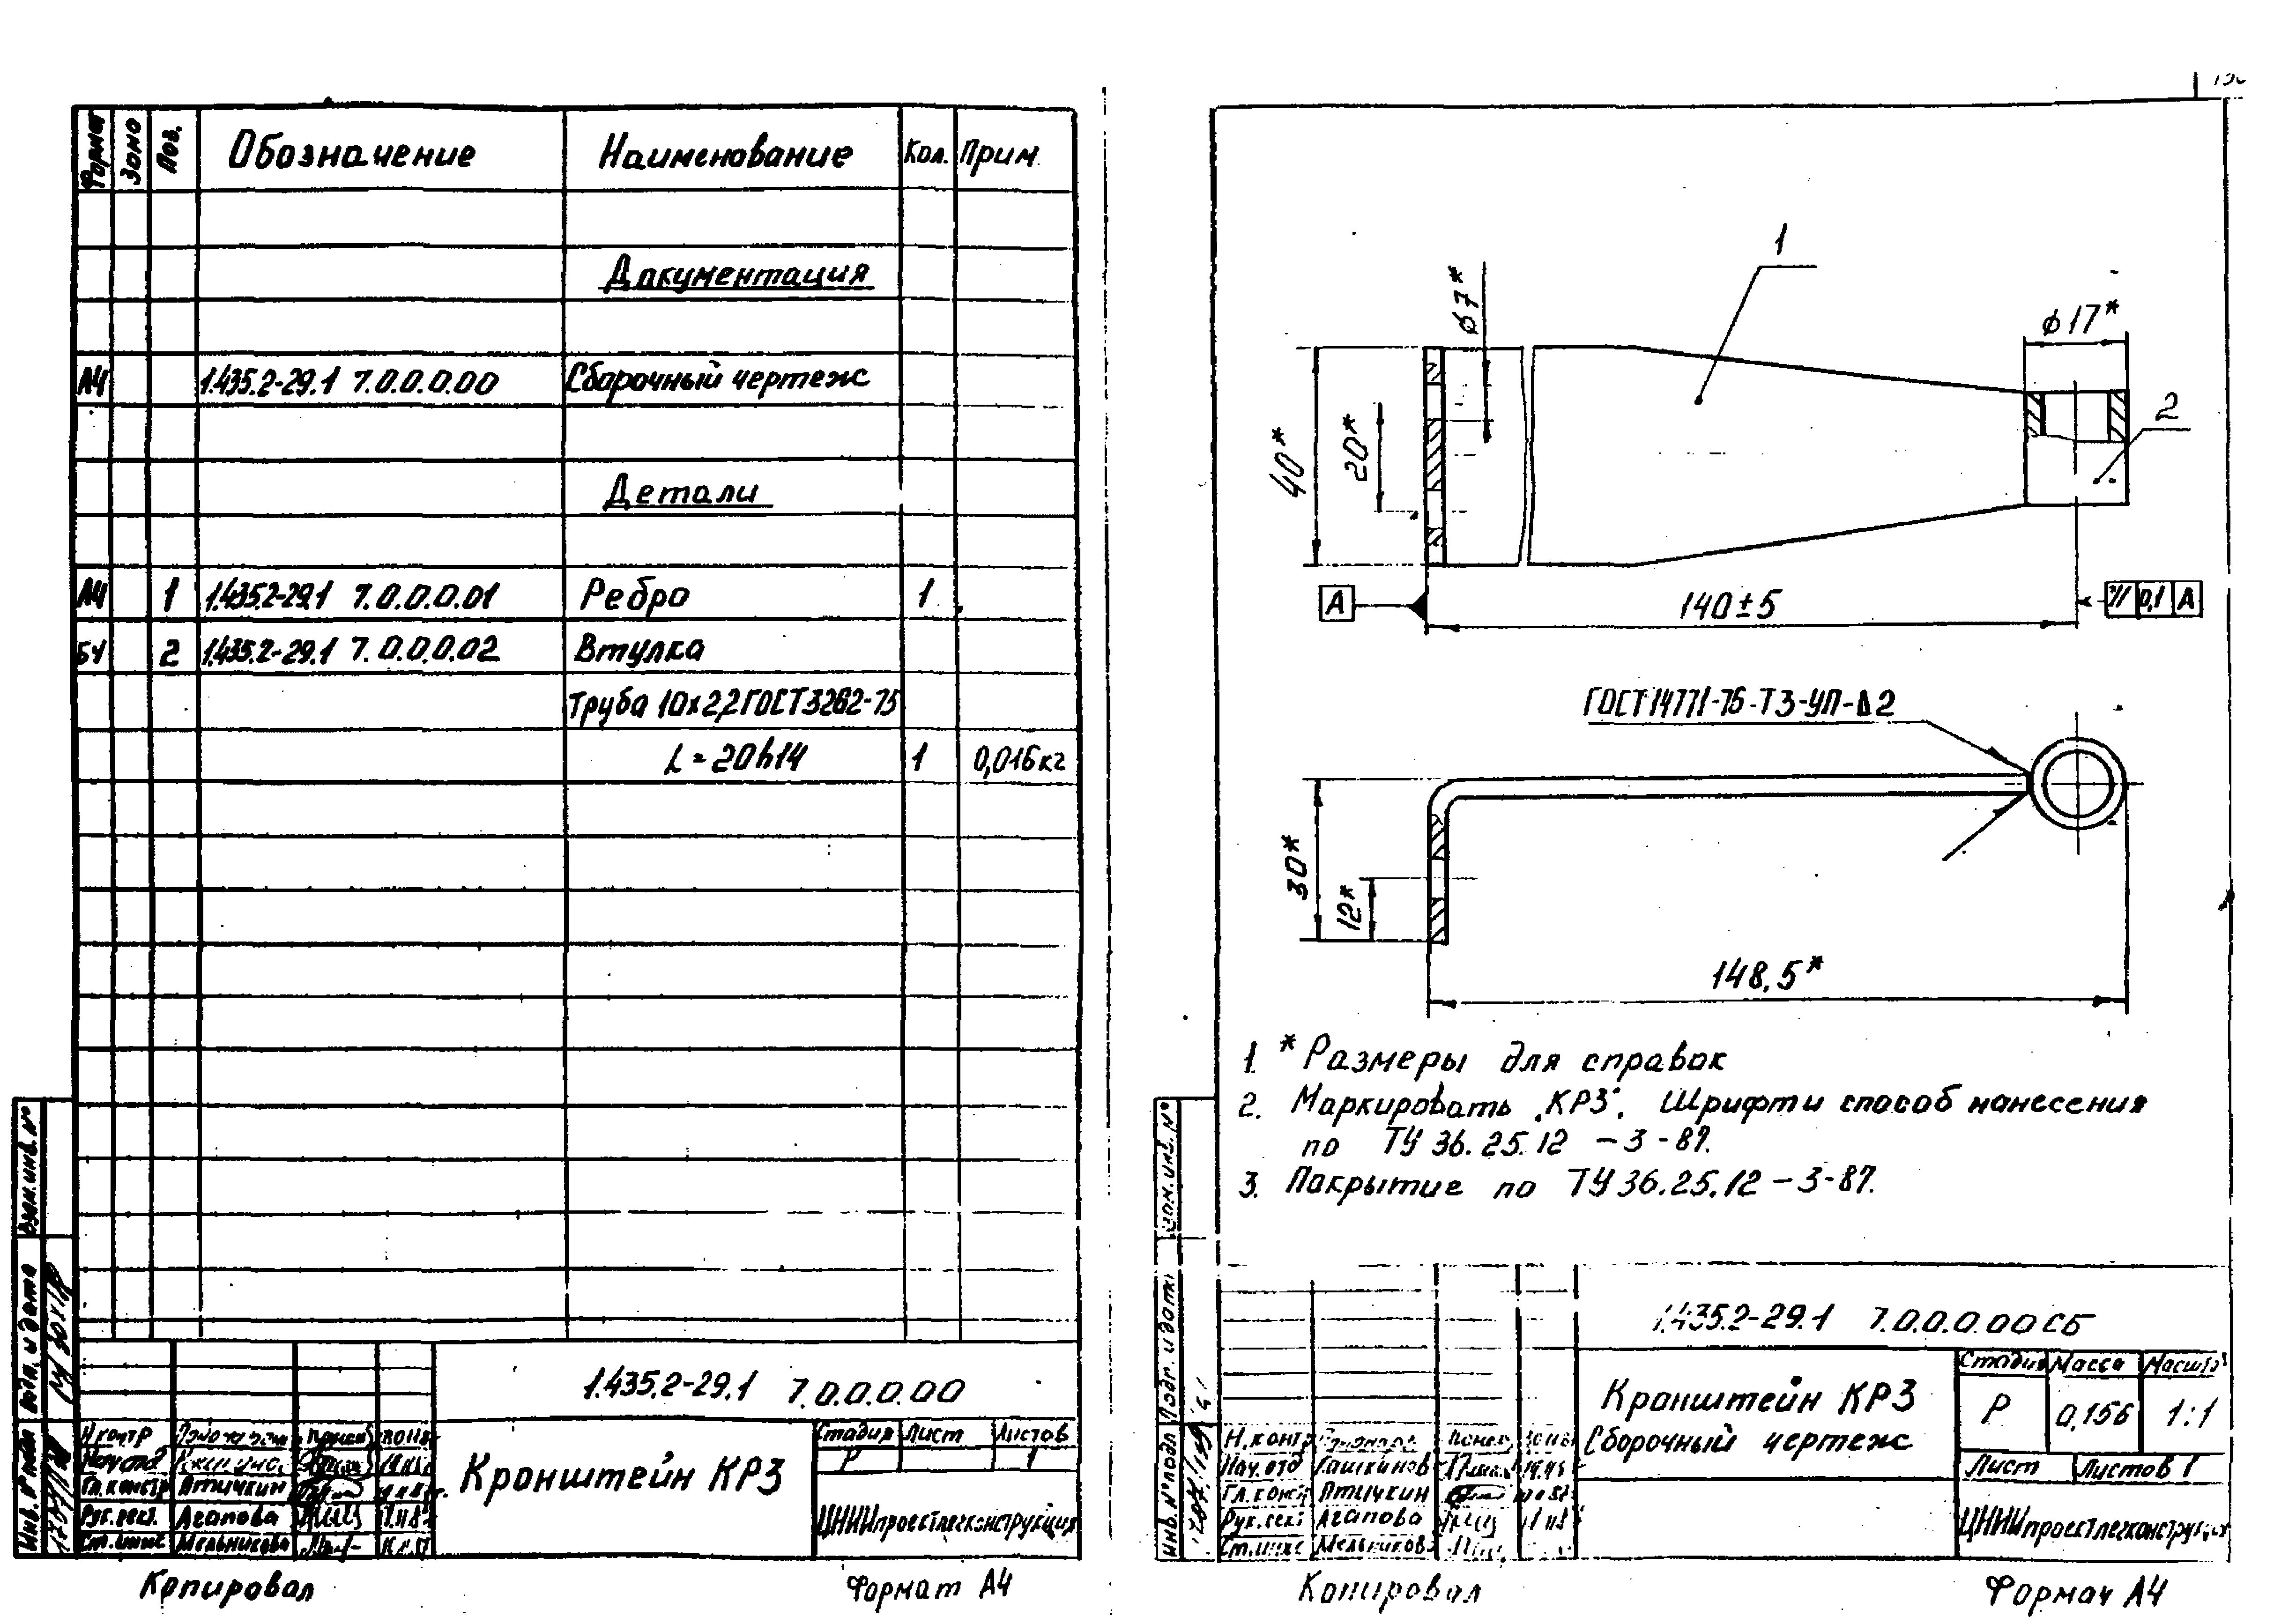 Формат Зона Поз. Обозначение Наименование Кол. Прим.
Документация
А4 1.435.2-29.1 7.0.0.0.00 Сборочный чертеж
Детали
А4 1 1.435.2-29.1 7.0.0.0.01 Ребро 1
БЧ 2 1.435.2-29.1 7.0.0.0.02 Втулка
Труба 10х2,2 ГОСТ 3262-75
L = 20h14 1 0,016 кг
Взам. инв. №
Подп. и дата
Инв. № подл
1.435.2-29.1 7.0.0.0.00
Н.контр
Нач.отд
Гл.констр Птичкин
Рук.сект. Агапова
Ст.инж Мельникова
Кронштейн КР3
Стадия Лист Листов
Р 1
ЦНИИпроектлегконструкция
Копировал
Формат А4
1
ф7*
ф17*
2
40*
20*
А
140±5
// 0,1 А
ГОСТ 14771-76-Т3-УП-Δ2
30*
12*
148,5*
1. * Размеры для справок
2. Маркировать „КР3". Шрифт и способ нанесения
по ТУ 36.25.12 – 3 - 87.
3. Покрытие по ТУ 36.25.12 – 3-87.
Взам. инв. №
Подп. и дата
Инв. № подл
1.435.2-29.1 7.0.0.0.00 СБ
Кронштейн КР3
Сборочный чертеж
Стадия Масса Масшт
Р 0,156 1:1
Лист Листов 1
Н.контр
Нач.отд Гашкинов
Гл.констр Птичкин
Рук.сект Агапова
Ст.инж Мельников
ЦНИИпроектлегконструкция
Копировал
Формат А4